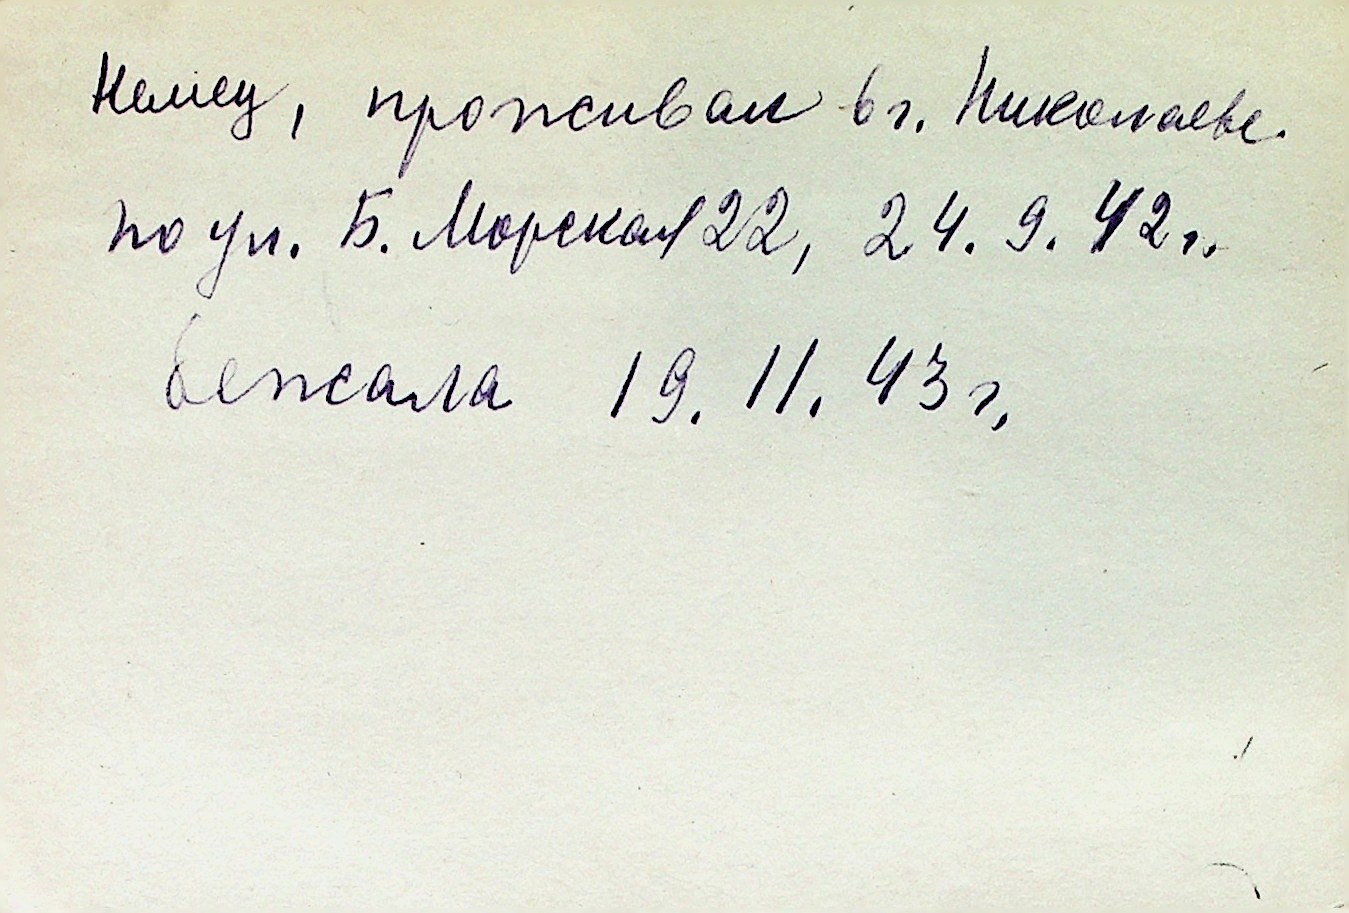 Немец, проживал в г. Николаеве
по ул. Б. Морская 22, 24. 9. 42 г.
бежала 19. 11. 43 г.